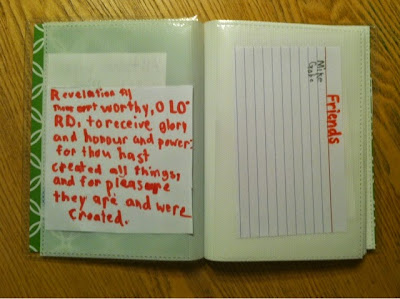 Revelation 4:11
Thou art worthy, O LO-
RD, to receive glory
and honour and power:
for thou hast
created all things,
and for pleasure
they are and were
created.
Friends
Mike
Gabe